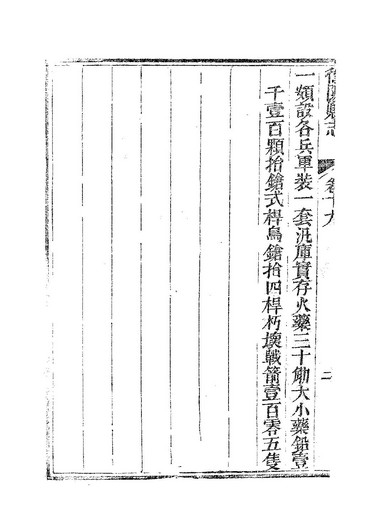 縣志
卷十九
二
一頒設各兵軍裝一套汛庫實存火藥三十觔大小藥鉛壹
千壹百顆抬鎗弍桿鳥鎗拾四桿朽壞戰箭壹百零五隻